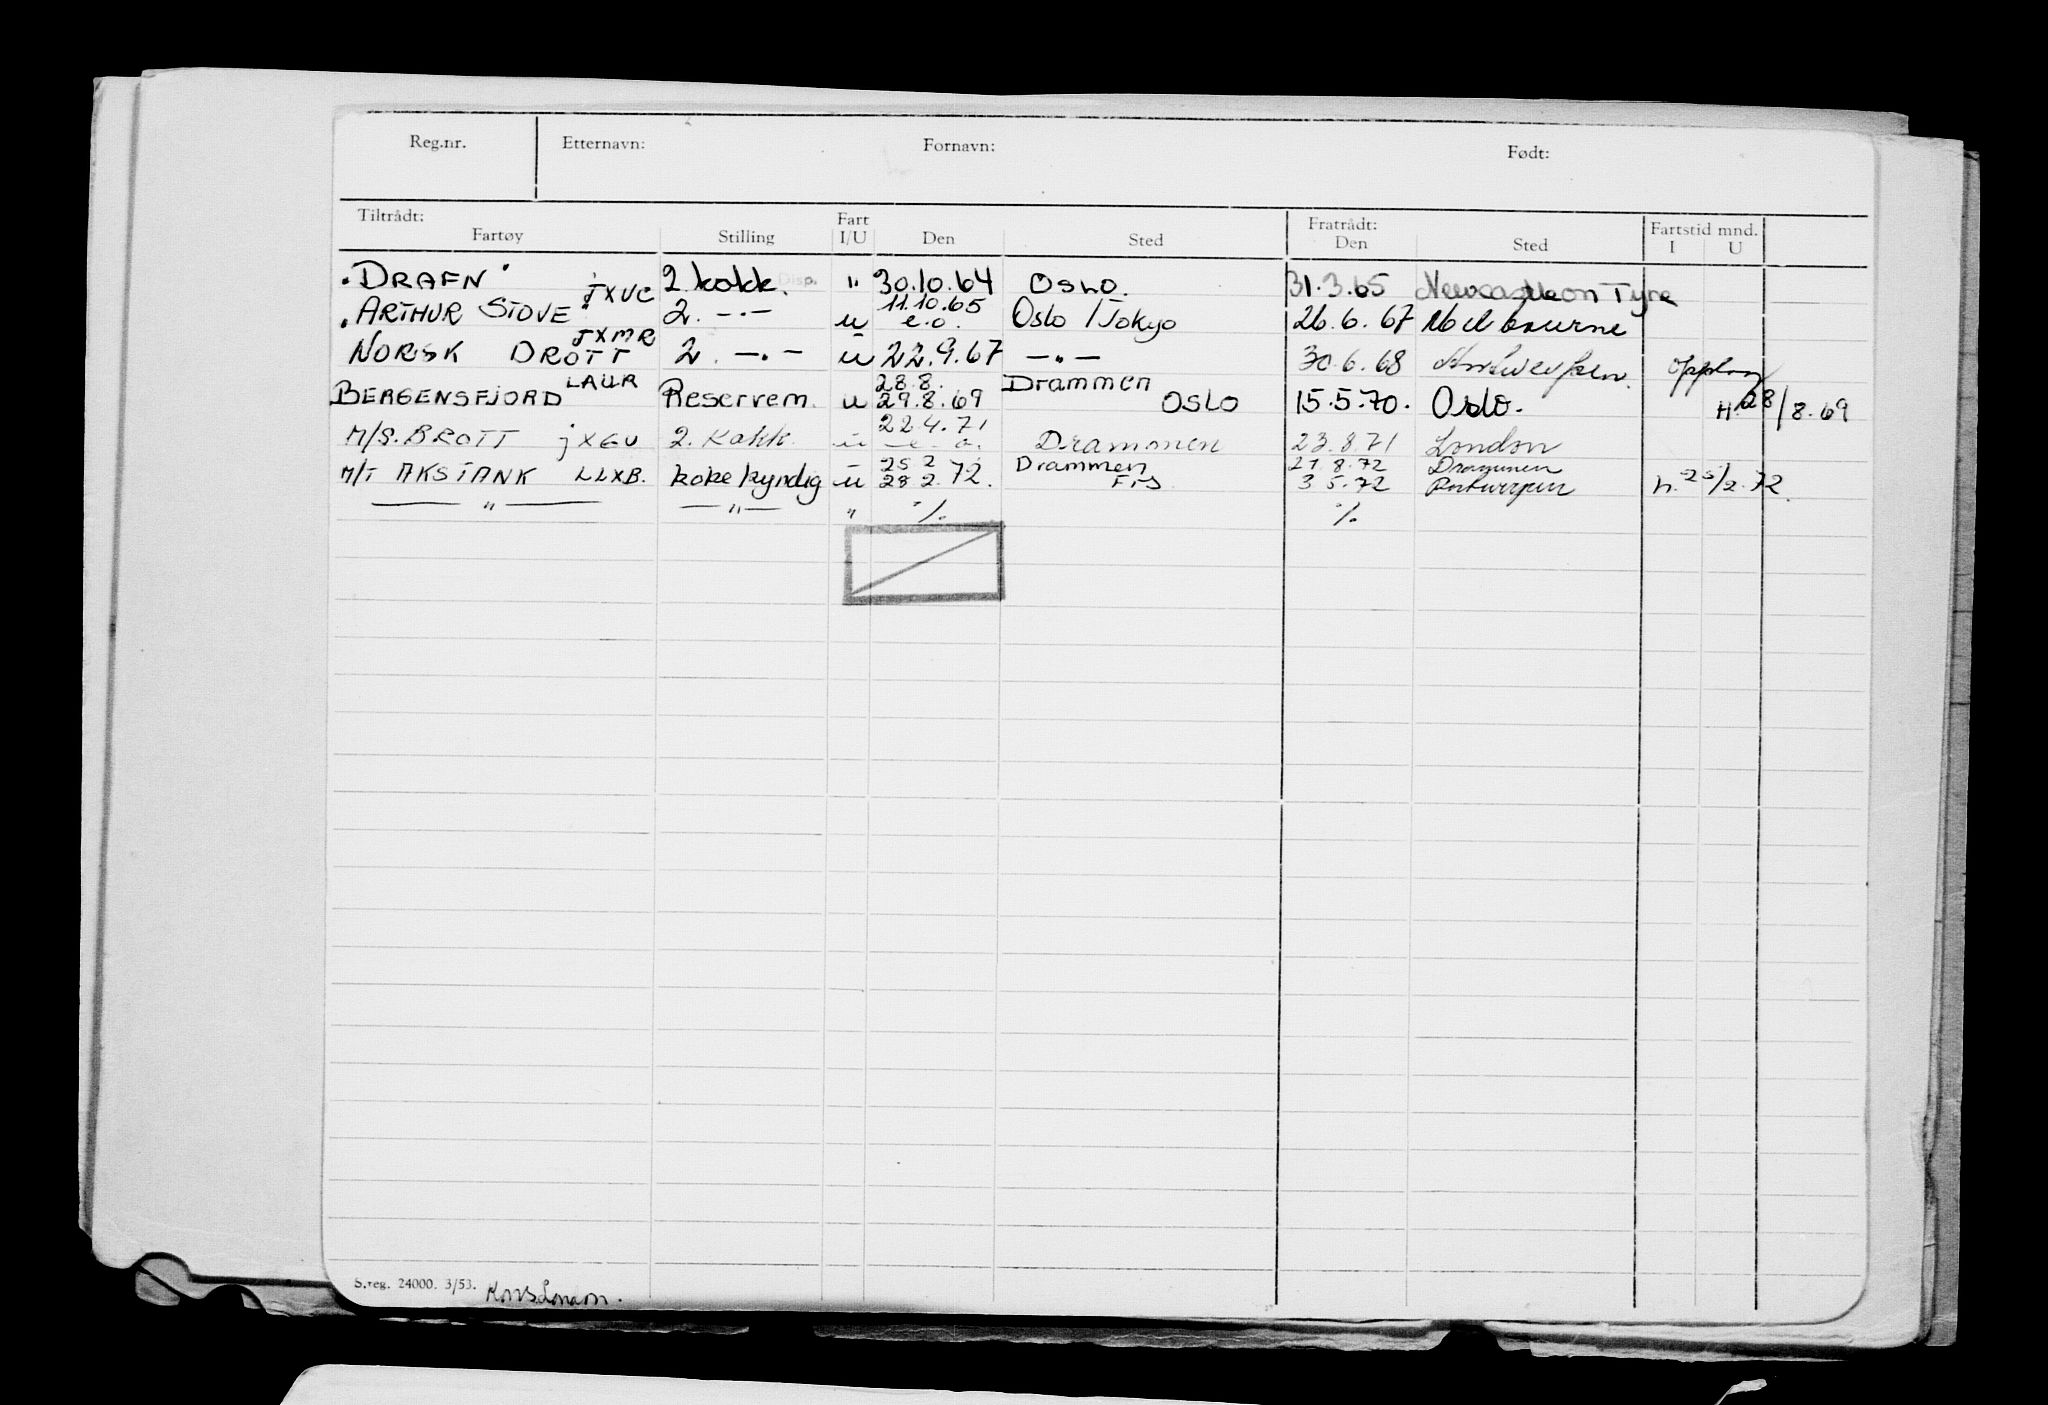 Reg.nr. Etternavn: Fornavn: Født:
Tiltrådt: Fratrådt: Fartstid mnd.
Fartøy Stilling Fart I/U Den Sted Den Sted I U
"DRAFN" 2. kokk. Disp. " 30.10.64 OSLO. 31.3.65 Newcastle on Tyne
"ARTHUR STOVE" JXVC 2. -"- u 11.10.65 e.o. Oslo / Tokyo 26.6.67 Melbourne
NORSK DROTT JXMR 2. -"- u 22.9.67 -"- 30.6.68 Antwerpen. Opplag
BERGENSFJORD LAUR Reservem. u 28.8. 29.8.69 Drammen OSLO 15.5.70. Oslo. H. 28/8.69
M/S. BROTT JXGU 2. Kokk. u 22.4.71 — e — o. Drammen 23.8.71 London
M/T AKSTANK LLXB. kokekyndig u 25 2 28 2. 72. Drammen 3 5.72 Drammen Antwerpen h. 25/2. 72.
— " — — " — " ./. ./.
S.reg. 24000. 3/53. Kons.London.